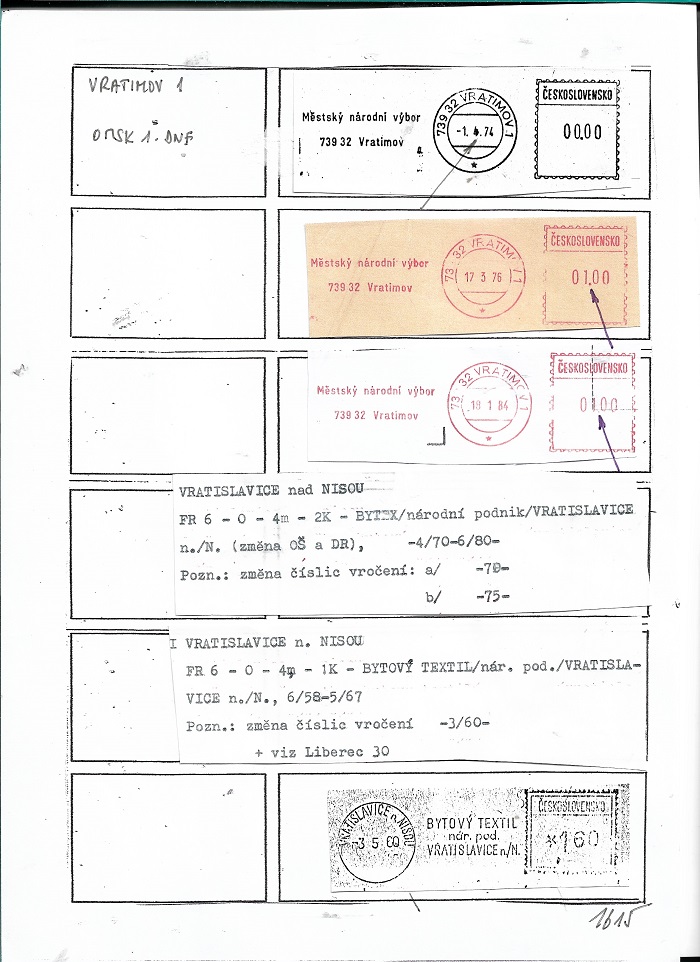 VRATIMOV 1
OTISK 1. DNE
Městský národní výbor
739 32 Vratimov
739 32 VRATIMOV 1
-1. 4. 74
ČESKOSLOVENSKO
00.00
Městský národní výbor
739 32 Vratimov
73 32 VRATIM 1
17 3 76
ČESKOSLOVENSKO
01.00
Městský národní výbor
739 32 Vratimov
73 32 VRATIMOV 1
18 1 84
ČESKOSLOVENSKO
01.00
VRATISLAVICE nad NISOU
FR 6 - O - 4m - 2K - BYTEX/národní podnik/VRATISLAVICE
n./N. (změna OŠ a DR), -4/70-6/80-
Pozn.: změna číslic vročení: a/ -70-
b/ -75-
I VRATISLAVICE n. NISOU
FR 6 - O - 4m - 1K - BYTOVÝ TEXTIL/nár. pod./VRATISLA-
VICE n./N., 6/58-5/67
Pozn.: změna číslic vročení -3/60-
+ viz Liberec 30
VRATISLAVICE n. NISOU
-3 5 60
BYTOVÝ TEXTIL
nár. pod.
VRATISLAVICE n/N.
ČESKOSLOVENSKO
*160
1615